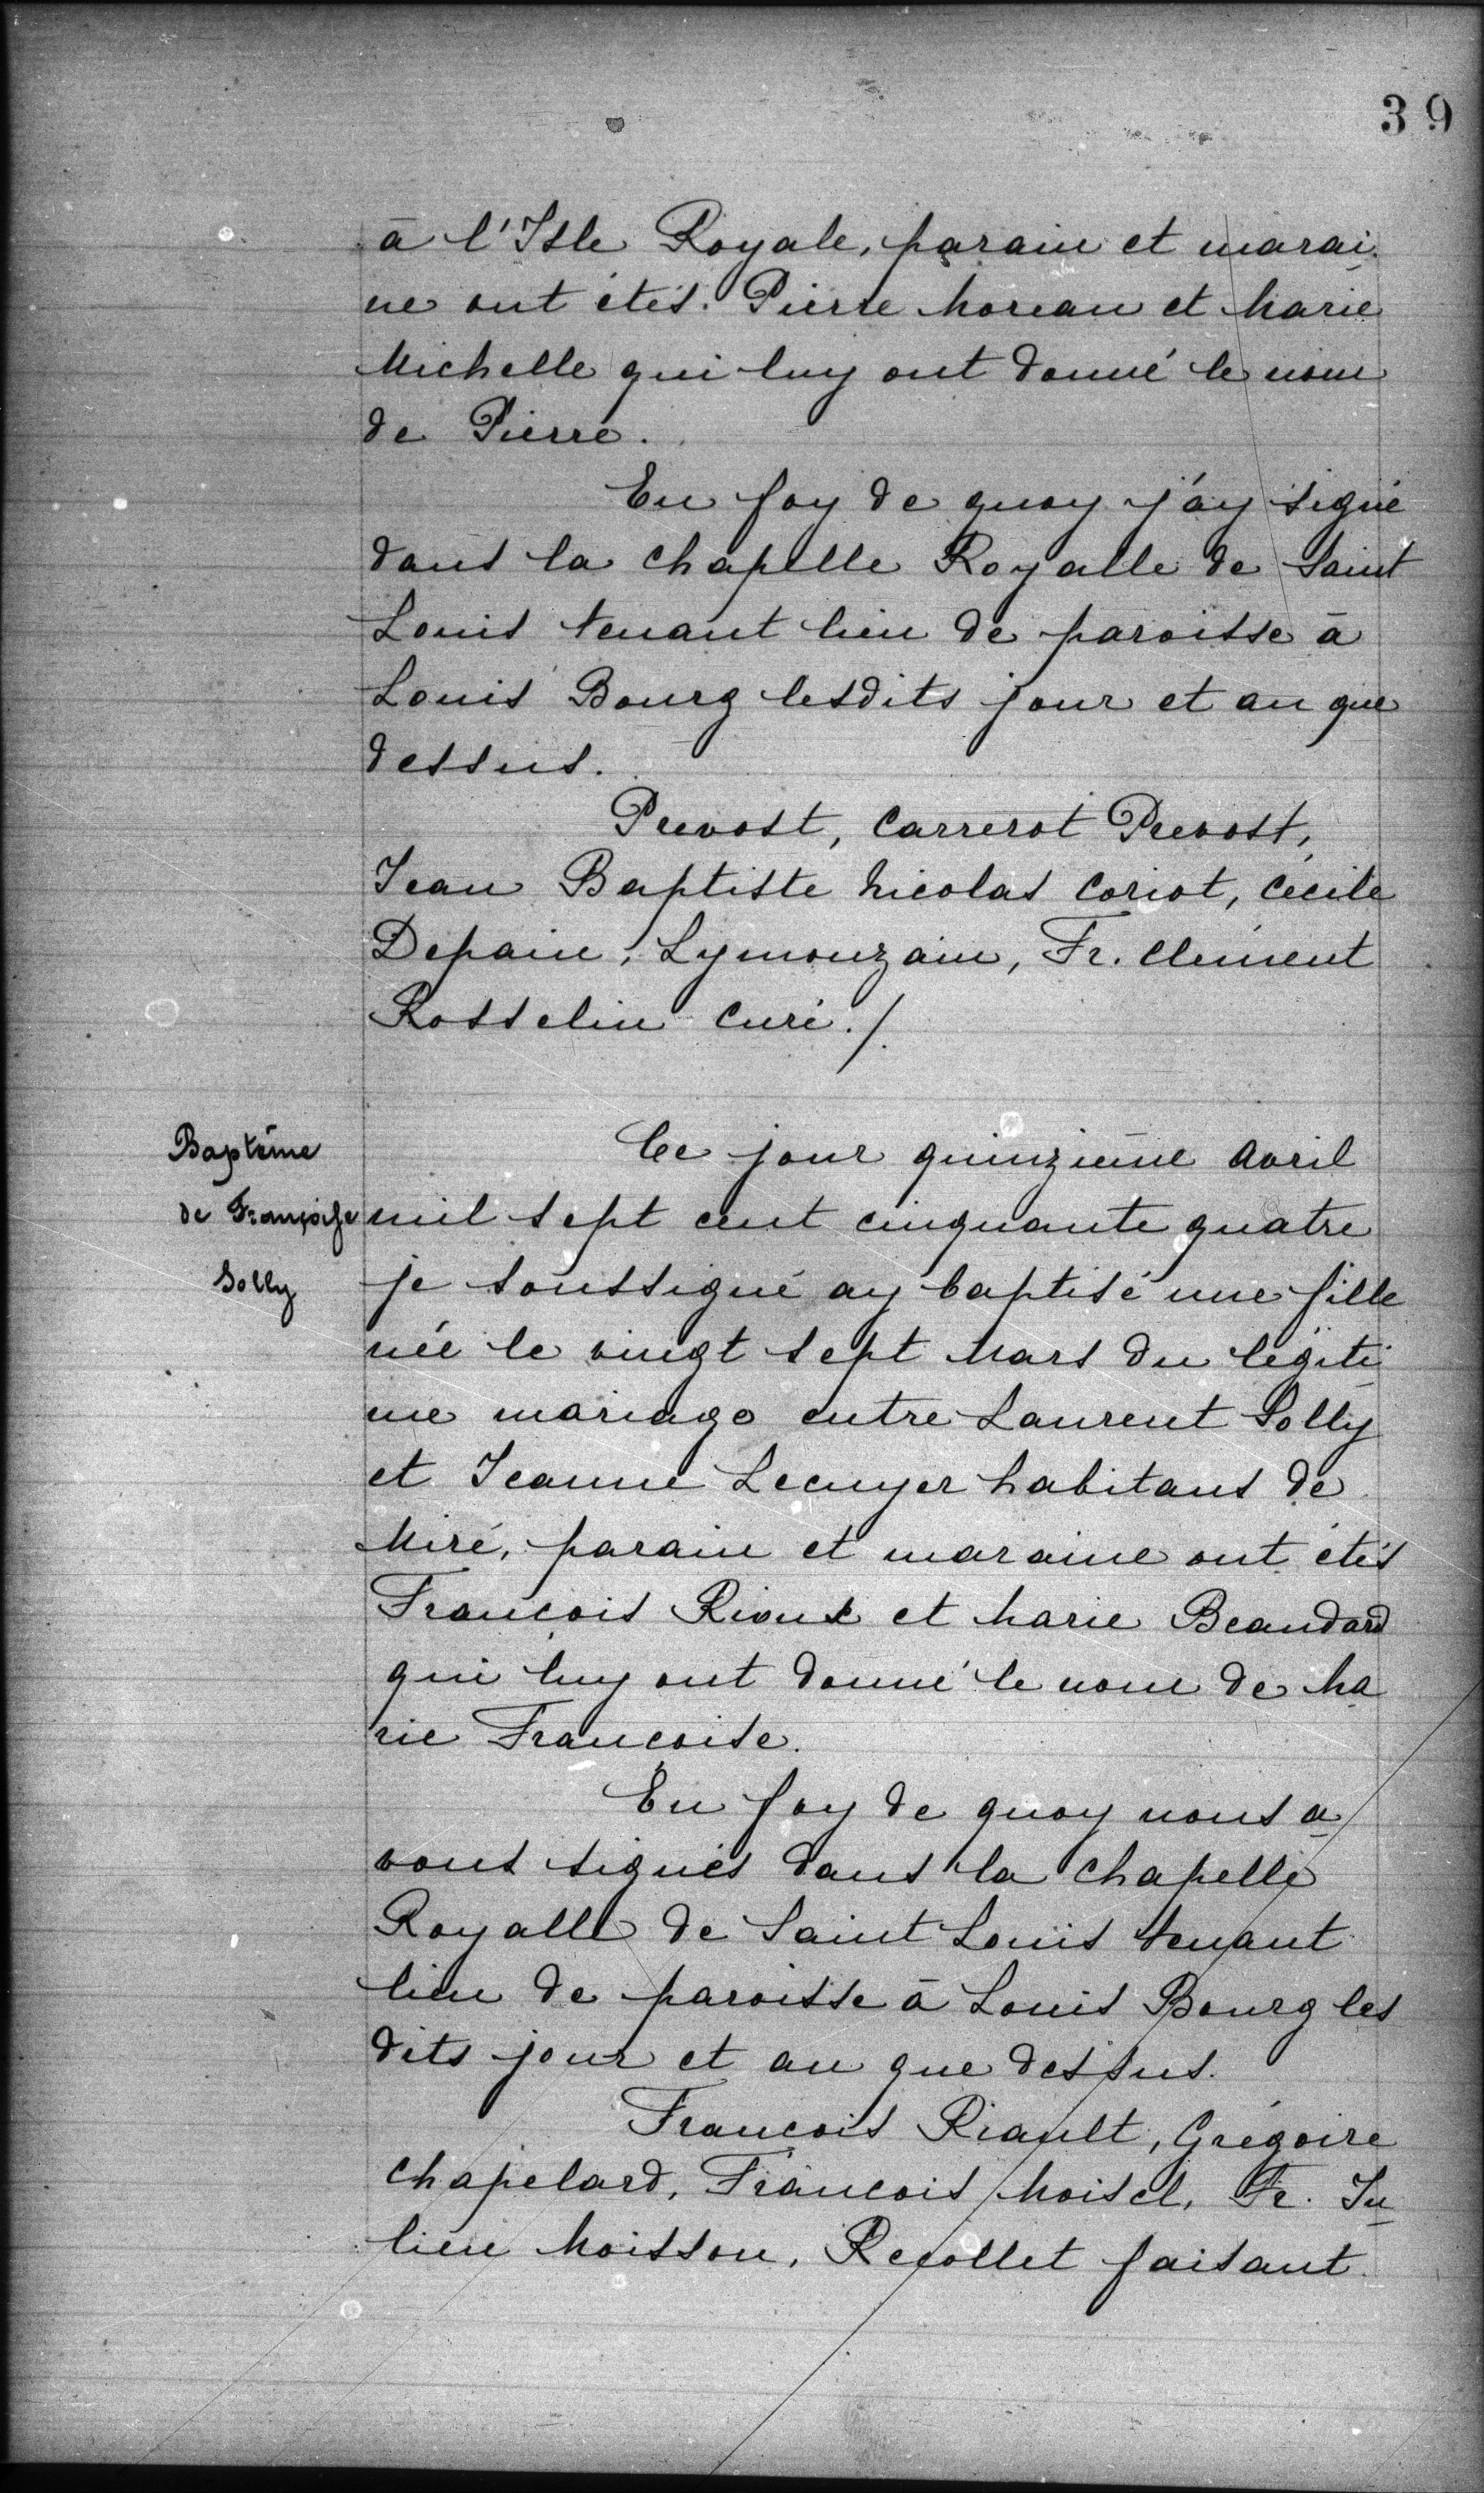 39
à l'Isle Royale, parain et marai
ne ont étés. Pierre Moreau et Marie
Michelle qui luy ont donné le nom
de Pierre.
En foy de quoy j'ay signé
dans la chapelle Royalle de Saint
Louis tenant lieu de paroisse à
Louis Bourg lesdits jour et an que
dessus.
Prevost, Carrerot Prevost,
Jean Baptiste Nicolas Coriot, Cecile
Depain, Lymouzain, Fr. Clément
Rosselin Curé./.
Baptême
de Françoise
Solly
Ce jour quinzième Avril
mil sept cent cinquante quatre
je soussigné ay baptisé une fille
née le vingt sept Mars du légiti
me mariage entre Laurent Solly
et Jeanne Lecuyer habitans de
Miré, parain et maraine ont étés
François Rioux et Marie Beaudard
qui luy ont donné le nom de Ma
rie Francoise.
En foy de quoy nous a
vons signés dans la chapelle
Royalle de Saint Louis tenant
lieu de paroisse à Louis Bourg les
dits jour et an que dessus.
Francois Riault, Grégoire
Chapelard, Francois Moisel, Fr. Ju
lien Moisson, Recollet faisant